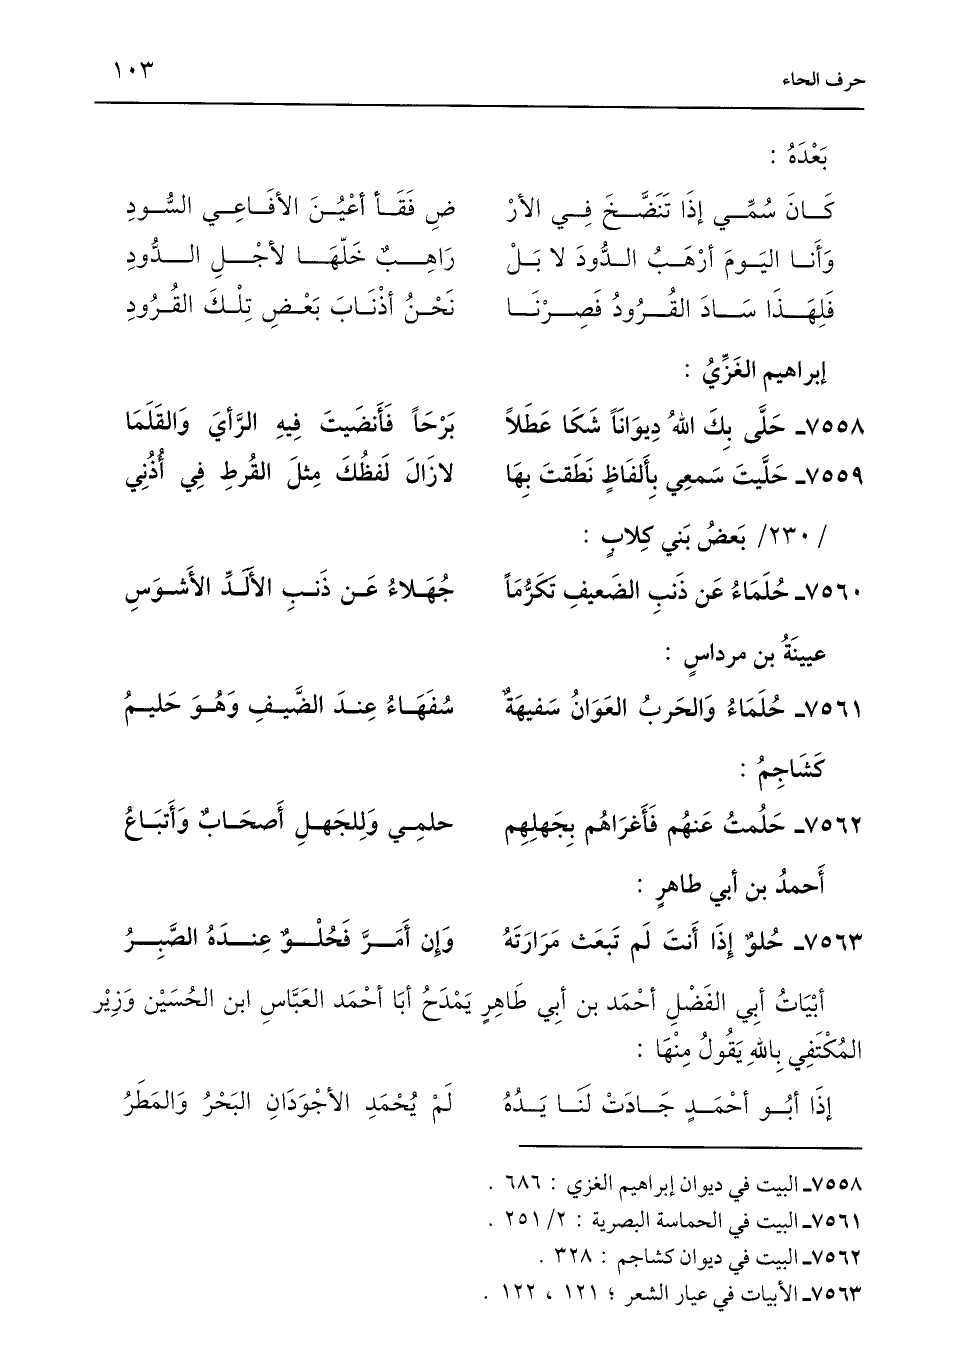 حرف الحاء ١٠٣
بَعْدَهُ :
كَانَ سُمِّي إذَا تَنَضَّخَ فِي الأرْ ضِ فَقَأ أعْيُنَ الأفَاعِي السُّودِ
وَأَنَا اليَومَ أرْهَبُ الدُّودَ لا بَلْ رَاهِبٌ خَلّهَا لأجْلِ الدُّودِ
فَلِهَذَا سَادَ القُرُودُ فَصِرْنَا نَحْنُ أذْنَابَ بَعْضِ تِلْكَ القُرُودِ
إبراهيم الغَزِّيُ :
٧٥٥٨ـ حَلَّى بِكَ اللهُ دِيوَانَاً شَكَا عَطَلاً بَرْحَاً فَأَنضَيتَ فِيهِ الرَّأيَ وَالقَلَمَا
٧٥٥٩ـ حَلَّيتَ سَمعِي بِأَلفَاظٍ نَطَقتَ بِهَا لازَالَ لَفظُكَ مِثلَ القُرطِ فِي أُذُنِي
/ ٢٣٠/ بَعضُ بَني كِلابٍ :
٧٥٦٠ـ حُلَمَاءُ عَن ذَنبِ الضَعيفِ تَكَرُّمَاً جُهَلاءُ عَن ذَنبِ الأَلَدِّ الأَشوَسِ
عيينَةُ بن مرداسٍ :
٧٥٦١ـ حُلَمَاءُ وَالحَربُ العَوَانُ سَفيهَةٌ سُفَهَاءُ عِندَ الضَّيفِ وَهُوَ حَليمُ
كَشَاجِمُ :
٧٥٦٢ـ حَلُمتُ عَنهُم فَأَغرَاهُم بِجَهلِهِم حلمِي وَلِلجَهلِ أَصحَابٌ وَأَتبَاعُ
أَحمدُ بن أبي طاهرٍ :
٧٥٦٣ـ حُلوٌ إذَا أَنتَ لَم تَبعَث مَرَارَتَهُ وَإن أَمَرَّ فَحُلْوٌ عِندَهُ الصَّبِرُ
أبْيَاتُ أبي الفَضْلِ أحْمَد بن أبي طَاهِرٍ يَمْدَحُ أبَا أحْمَد العَبَّاسِ ابن الحُسَيْن وَزِيْر
المُكْتَفِي بِاللهِ يَقُولُ مِنْهَا :
إذَا أبُو أحْمَدٍ جَادَتْ لَنَا يَدُهُ لَمْ يُحْمَدِ الأجْوَدَانِ البَحْرُ وَالمَطَرُ
٧٥٥٨ـ البيت في ديوان إبراهيم الغزي : ٦٨٦ .
٧٥٦١ـ البيت في الحماسة البصرية : ٢/ ٢٥١ .
٧٥٦٢ـ البيت في ديوان كشاجم : ٣٢٨ .
٧٥٦٣ـ الأبيات في عيار الشعر ؛ ١٢١ ، ١٢٢ .